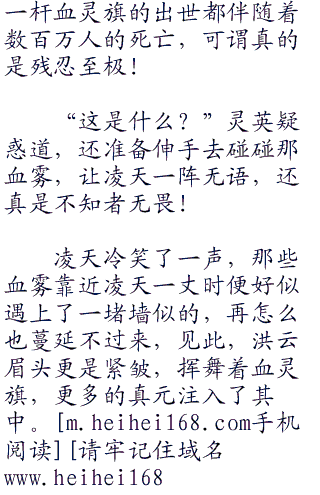 一杆血灵旗的出世都伴随着
数百万人的死亡，可谓真的
是残忍至极！
“这是什么？”灵英疑
惑道，还准备伸手去碰碰那
血雾，让凌天一阵无语，还
真是不知者无畏！
凌天冷笑了一声，那些
血雾靠近凌天一丈时便好似
遇上了一堵墙似的，再怎么
也蔓延不过来，见此，洪云
眉头更是紧皱，挥舞着血灵
旗，更多的真元注入了其
中。[m.heihei168.com手机
阅读][请牢记住域名
www.heihei168